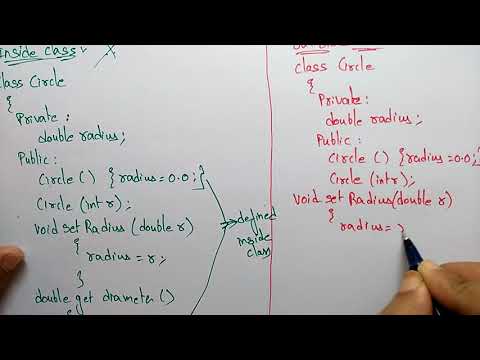 Inside class
class Circle
{
Private:
double radius;
Public:
Circle () {radius=0.0;}
Circle (int r);
void set Radius (double r)
{
radius=r;
}
double get diameter ()
{
defined
inside
class
class Circle
{
Private:
double radius;
Public:
Circle () {radius=0.0;}
Circle (int r);
void set Radius(double r)
{
radius=